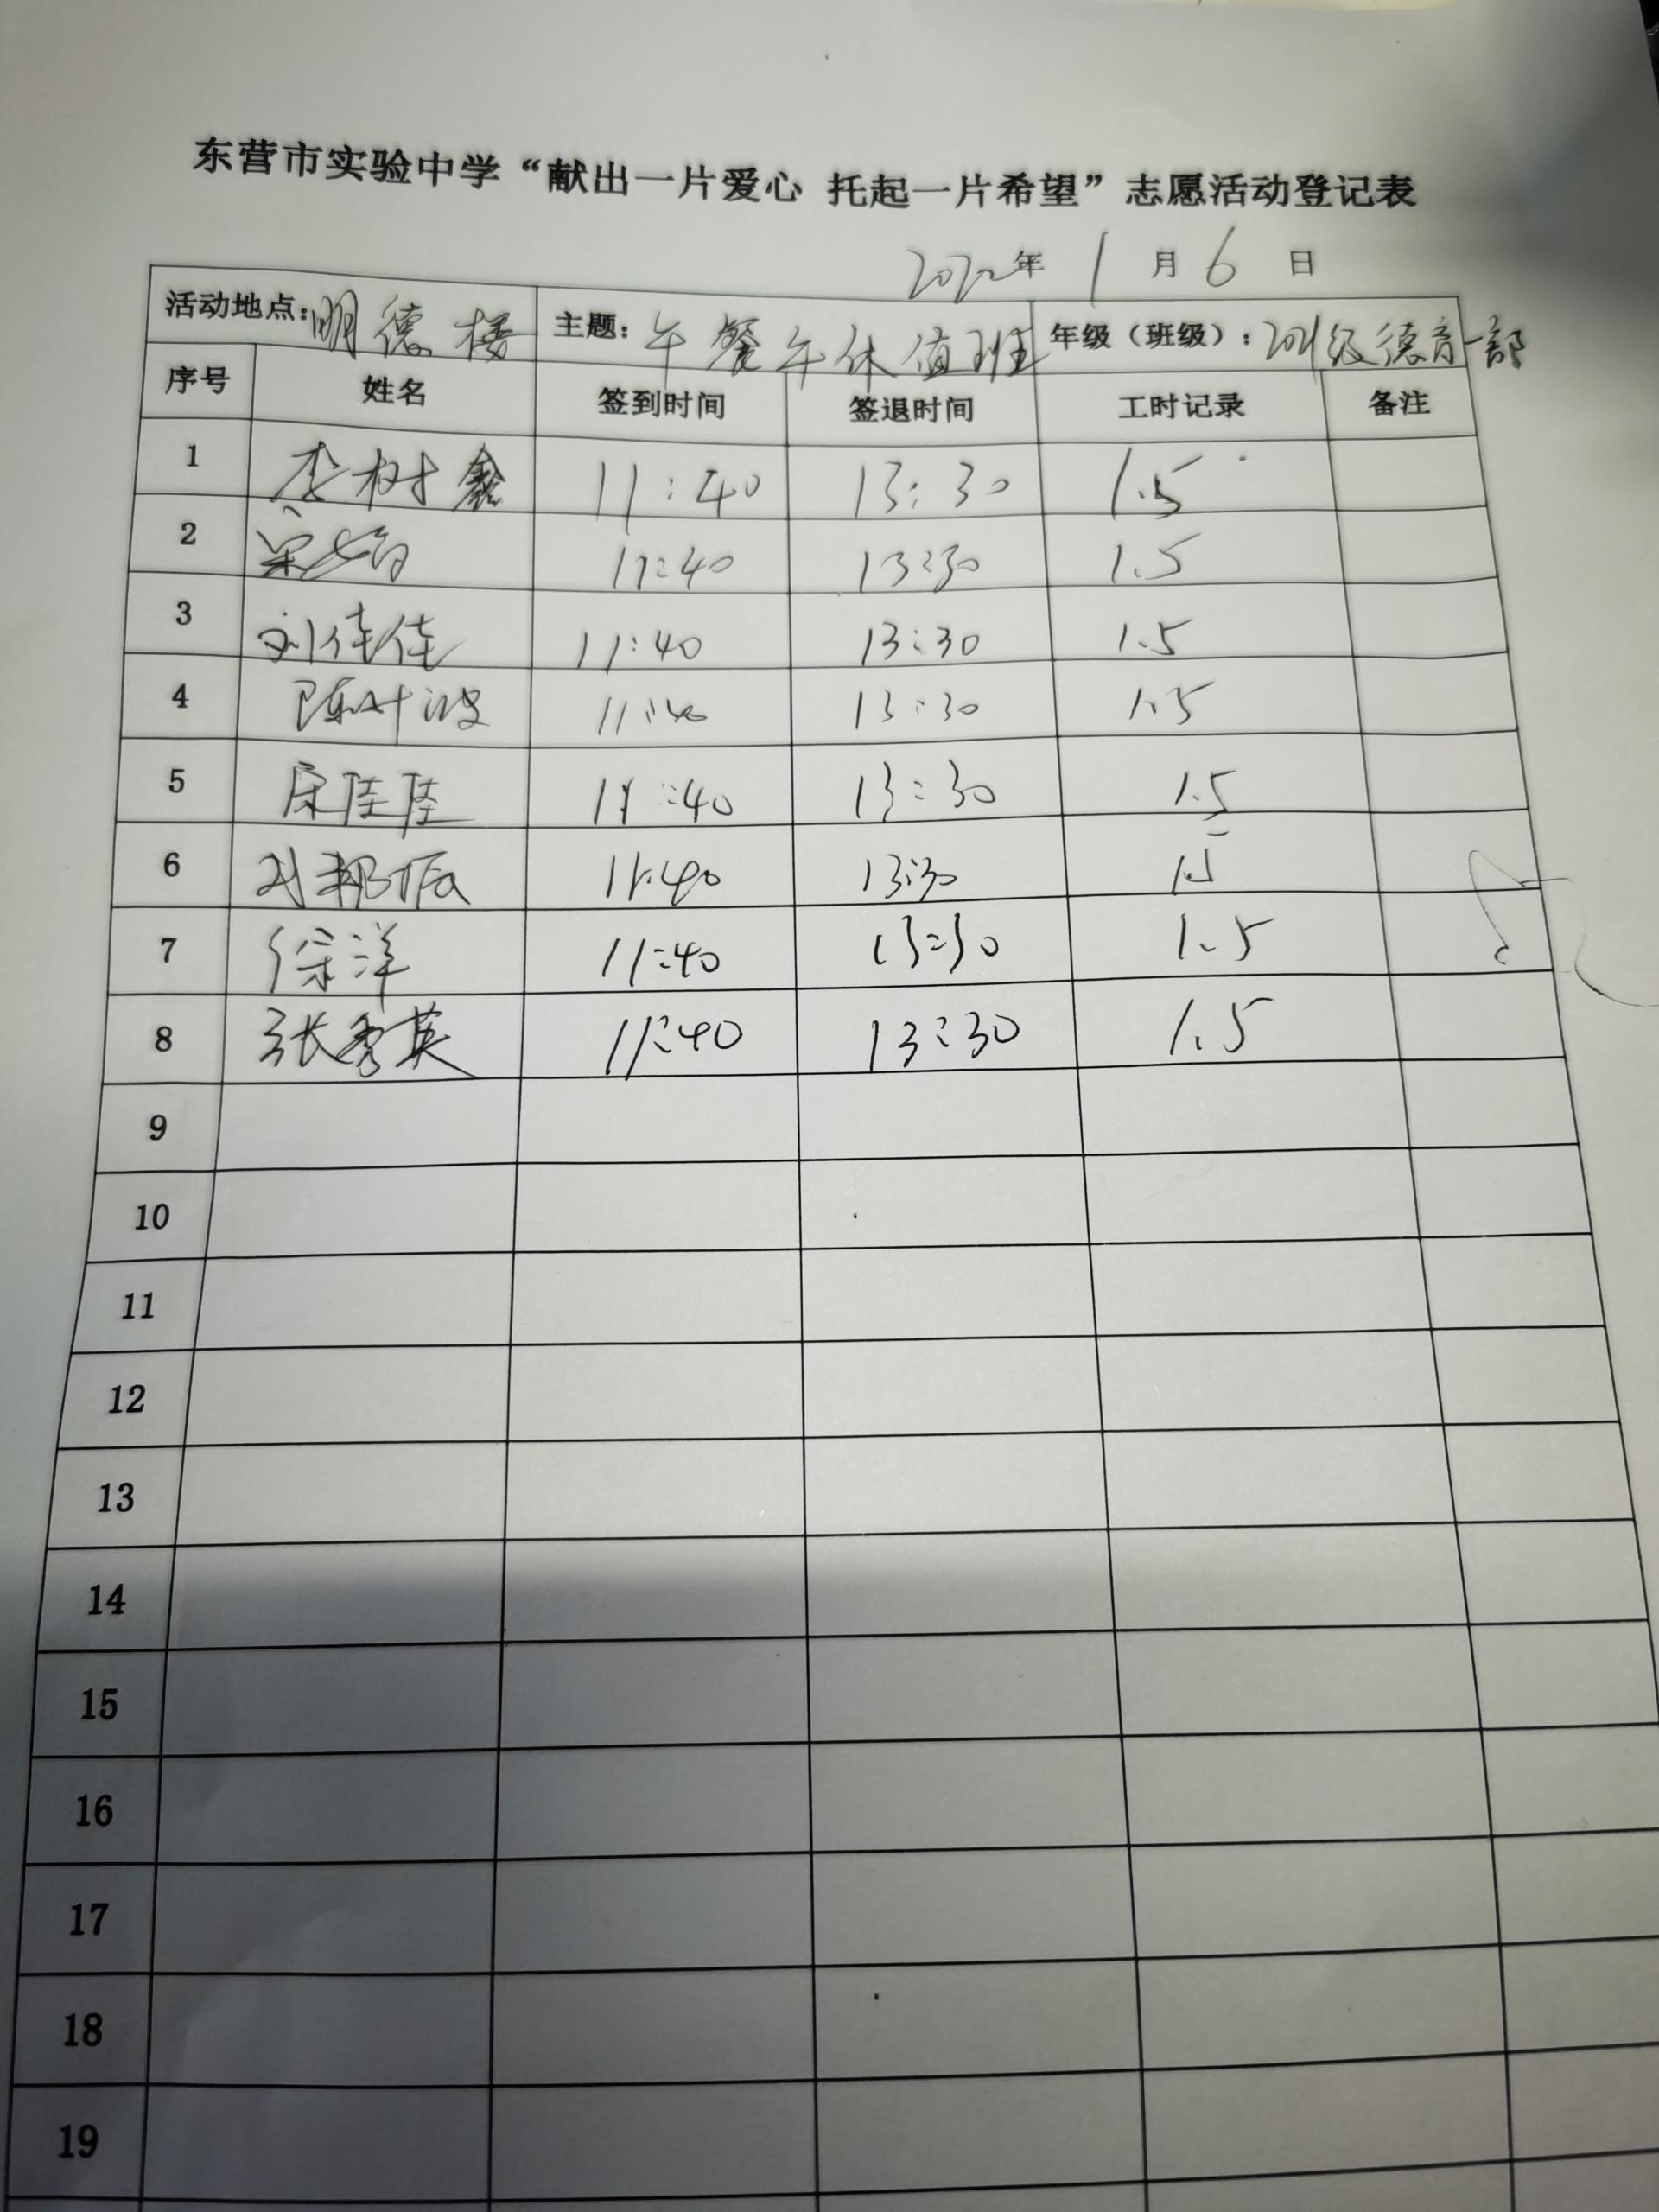 东营市实验中学“献出一片爱心 托起一片希望”志愿活动登记表
2022年 1 月 6 日
活动地点：明德楼 主题：午餐午休值班 年级（班级）：2021级德育一部
序号 姓名 签到时间 签退时间 工时记录 备注
1 李树鑫 11:40 13:30 1.5
2 11:40 13:30 1.5
3 刘佳佳 11:40 13:30 1.5
4 陈叶波 11:40 13:30 1.5
5 宋佳佳 11:40 13:30 1.5
6 11:40 13:30 1.5
7 徐洋 11:40 13:30 1.5
8 张秀英 11:40 13:30 1.5
9
10
11
12
13
14
15
16
17
18
19